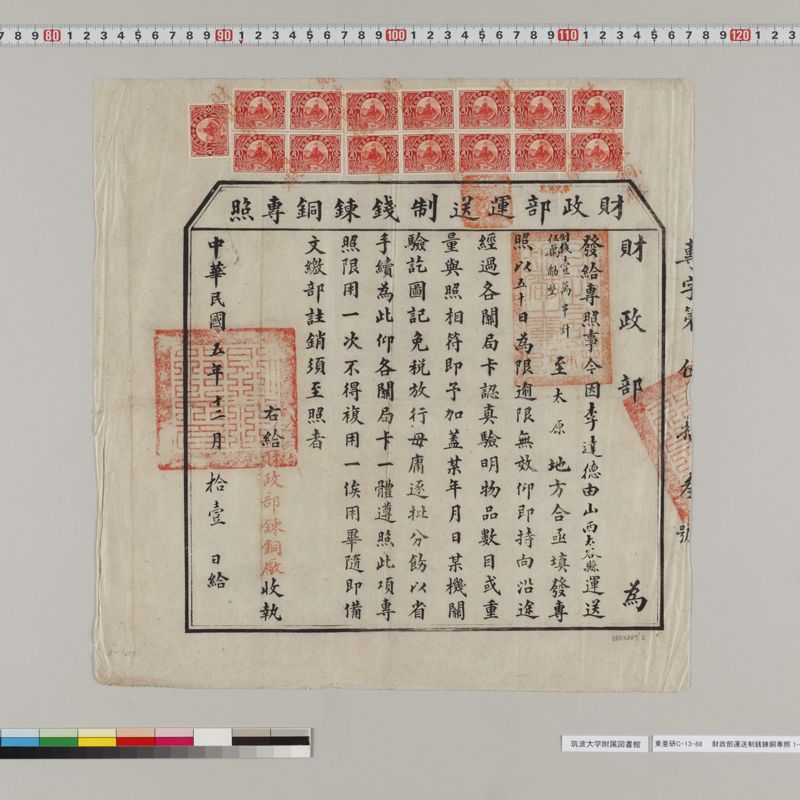 財政部運送制錢鍊銅專照
財政部 為
發給專照事今因李達德由山西太谷縣運送
制錢壹萬串計
伍萬觔整 至太原 地方合亟填發專
照以五十日為限逾限無效仰即持向沿途
經過各關局卡認真驗明物品數目或重
量與照相符即予加蓋某年月日某機關
驗訖圖記免稅放行毋庸逐批分飭以省
手續為此仰各關局卡一體遵照此項專
照限用一次不得複用一俟用畢隨即備
文繳部註銷須至照者
右給財政部鍊銅廠收執
中華民國五年十二月拾壹日給
專字第 叁號
筑波大学附属図書館
東亜研C-13-88 財政部運送制銭錬銅専照 1-